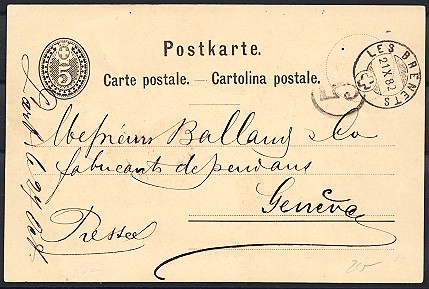 Postkarte.
Carte postale. — Cartolina postale.
5
LES BRENETS
21 X 82
Messieurs Balland & Co
fabricants de pendans
Genève
Pressée